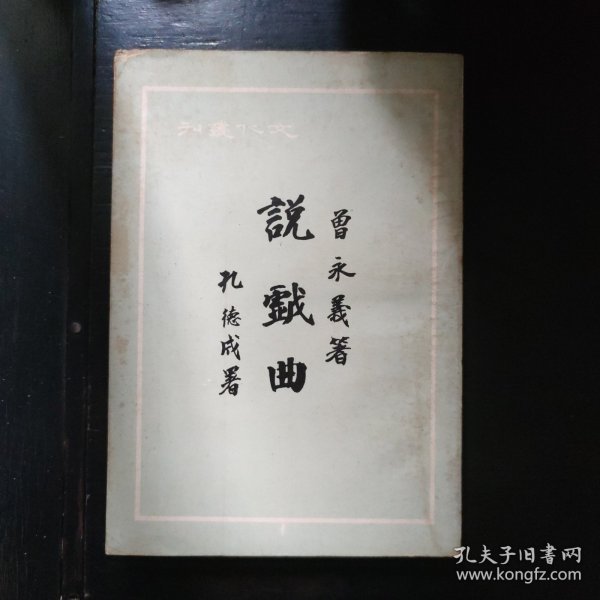 文化叢刊
曾永義著
説戲曲
孔德成署
孔夫子旧書网
www.kongfz.com